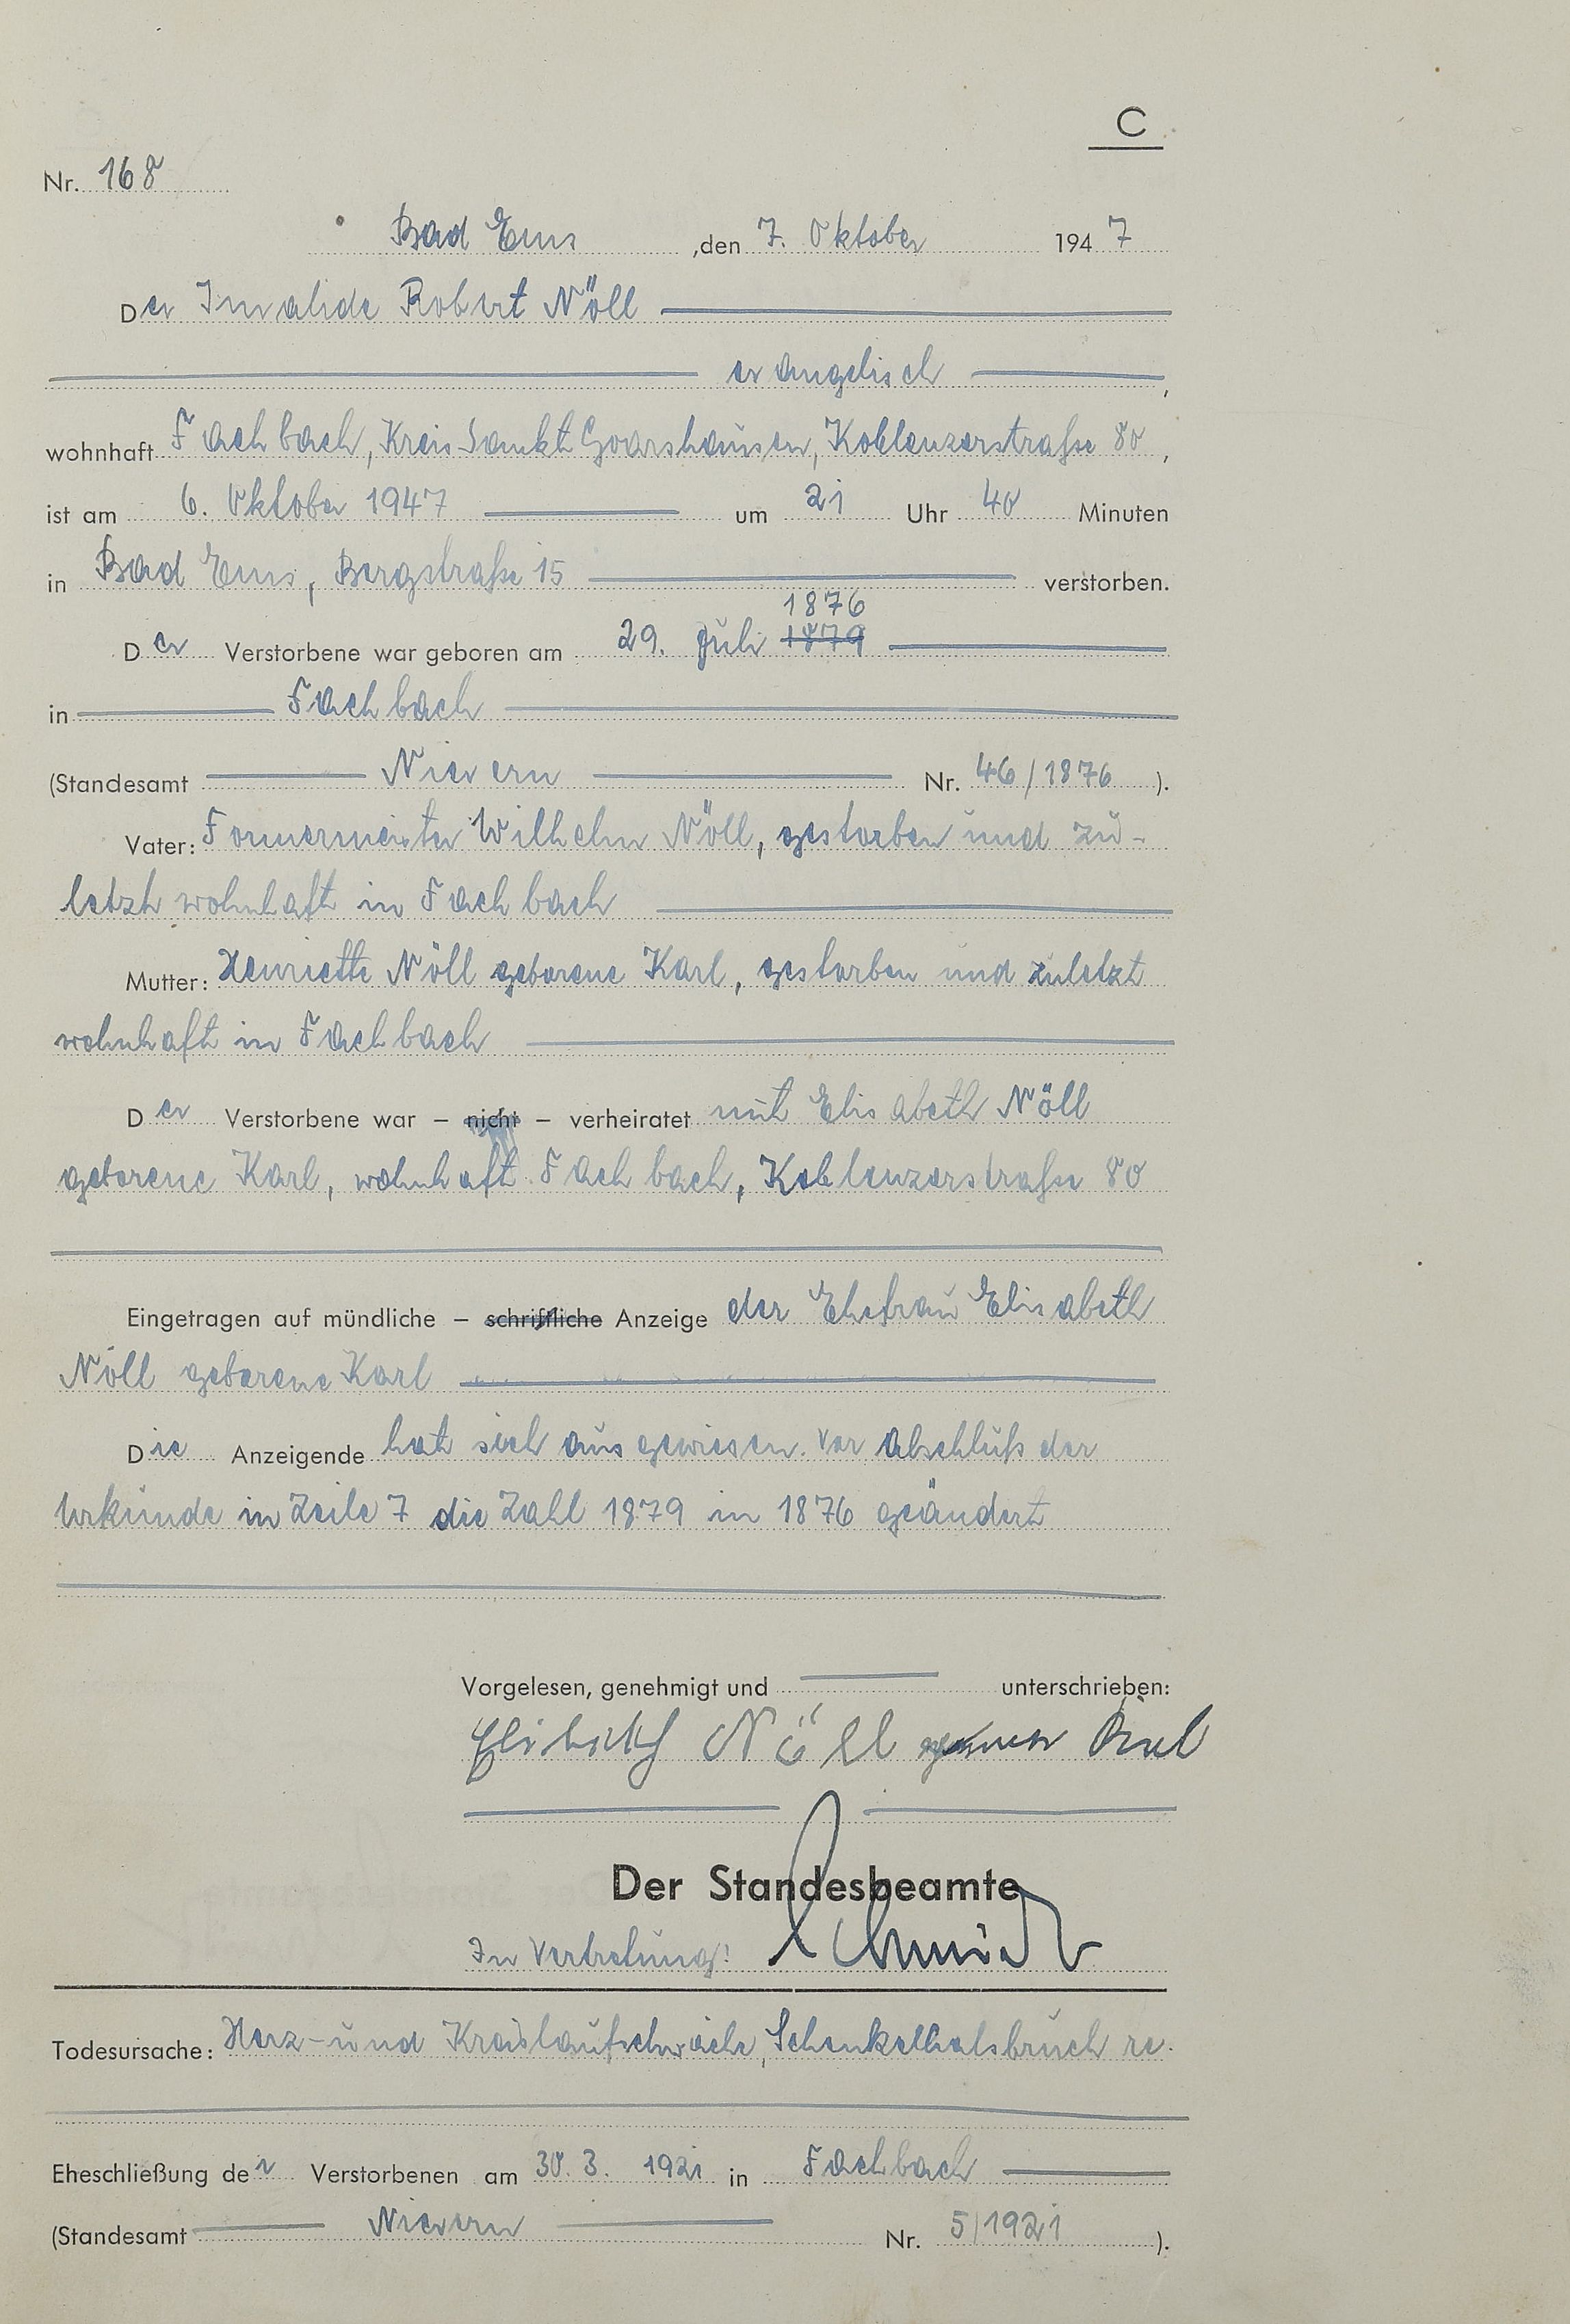 C
Nr. 168
Bad Ems, den 7. Oktober 1947
Der Invalide Robert Nöll
evangelisch,
wohnhaft Fachbach, Kreis Sankt Goarshausen, Koblenzerstraße 80,
ist am 6. Oktober 1947 um 21 Uhr 40 Minuten
in Bad Ems, Bergstraße 15 verstorben.
1876
Der Verstorbene war geboren am 29. Juli 1879
in Fachbach
(Standesamt Nievern Nr. 46/1876).
Vater: Formermeister Wilhelm Nöll, gestorben und zu-
letzt wohnhaft in Fachbach
Mutter: Henriette Nöll geborene Karl, gestorben und zuletzt
wohnhaft in Fachbach
Der Verstorbene war – nicht – verheiratet mit Elisabeth Nöll
geborene Karl, wohnhaft Fachbach, Koblenzerstraße 80
Eingetragen auf mündliche – schriftliche Anzeige der Ehefrau Elisabeth
Nöll geborene Karl
Die Anzeigende hat sich ausgewiesen. Vor Abschluß der
Urkunde in Zeile 7 die Zahl 1879 in 1876 geändert
Vorgelesen, genehmigt und unterschrieben:
Elisabeth Nöll Karl
Der Standesbeamte
In Vertretung: Schmidt
Todesursache: Herz- und Kreislaufschwäche, Schenkelhalsbruch re.
Eheschließung der Verstorbenen am 30. 3. 1921 in Fachbach
(Standesamt Nievern Nr. 5/1921).